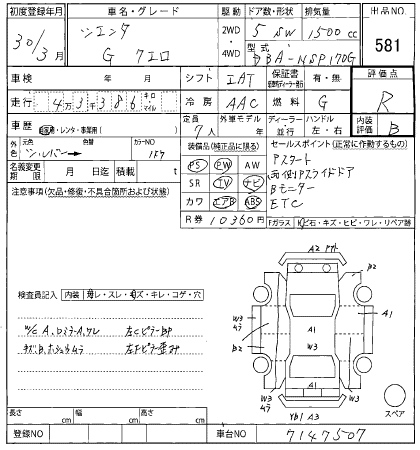 初度登録年月 車名・グレード 駆動 ドア数・形状 排気量 出品NO.
30/3月 シエンタ 2WD・4WD 5 SW 1500cc
G 7エロ 型式 DBA-NSP170G 581
車検 年 月 シフト IAT 保証書 有・無 評価点
走行 4万3千386 キロ・マイル 冷房 AAC 燃料 G R
車歴 自家用・レンタ・事業用( ) 定員 7人 外車モデル 年 ディーラー・並行 ハンドル 左・右 内装評価 B
外色 元色 シルバー 色替 カラーNO 1F7
装備品(純正品に限る) セールスポイント(正常に作動するもの)
名義変更期限 月 日迄 積載 t
PS PW AW
SR TV ナビ
カワ エアB ABS
R券 10360円
Pスタート
両側Pスライドドア
Bモニター
ETC
注意事項(欠品・修復・不具合箇所および状態)
Fガラス 飛石・キズ・ヒビ・ワレ・リペア跡
検査員記入 内装 ヨゴレ・スレ・キズ・キレ・コゲ・穴
左Cピラー
左Fピラー歪み
A2
B2
W3
B2
A1
W3
A1
W3
W3
YB1 A3
スペア
長さ cm 幅 cm 高さ cm
登録NO 車台NO 7147507